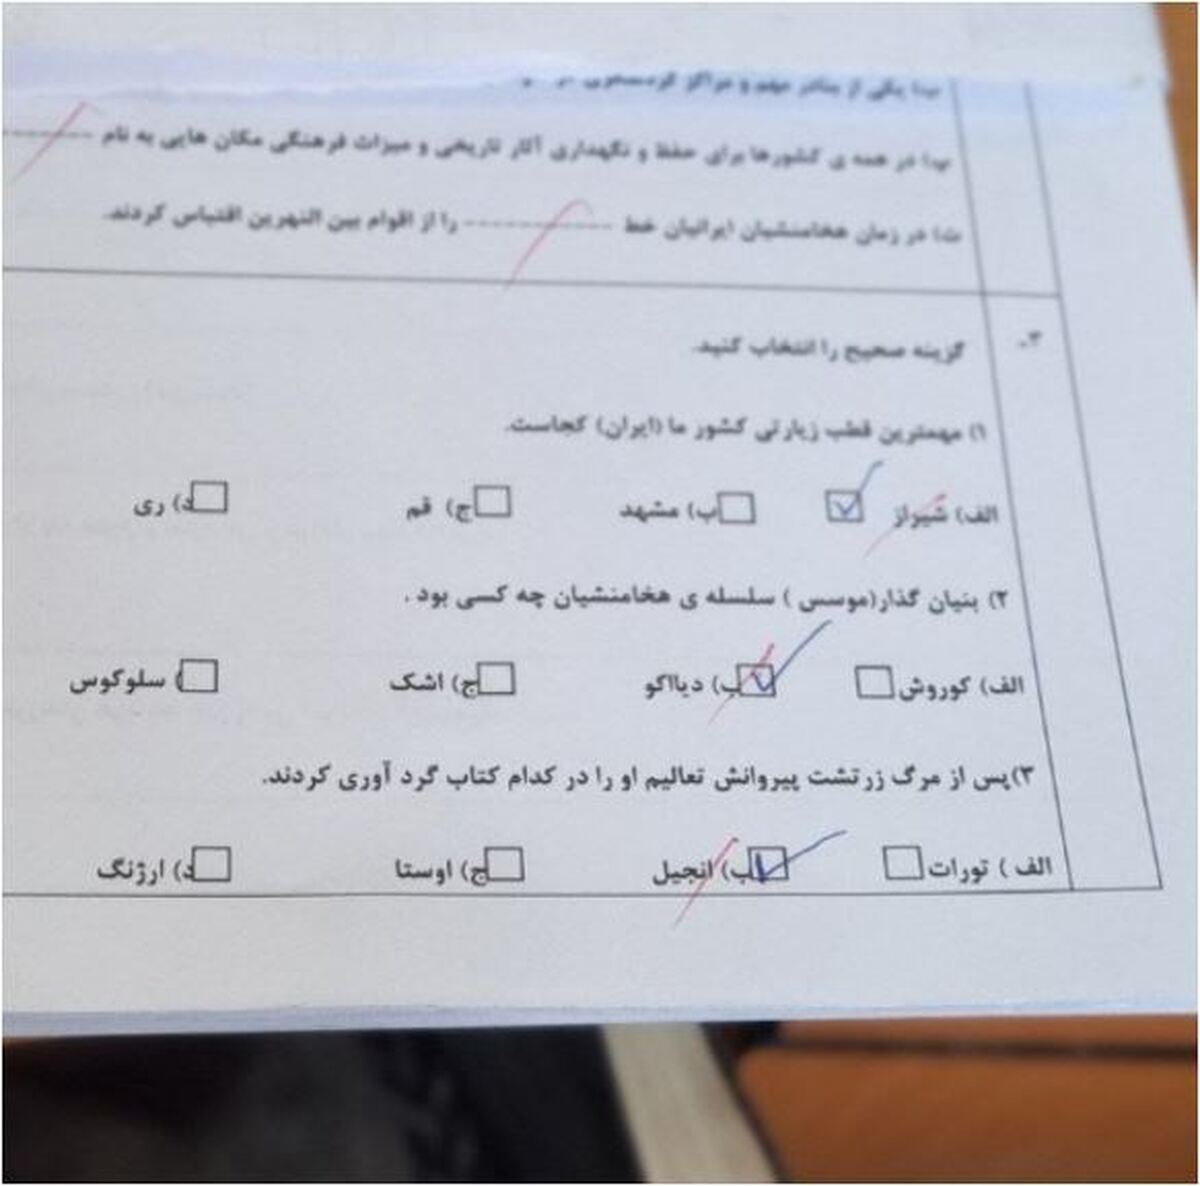 یکی از بنادر مهم و مراکز
پ) در همه ی کشورها برای حفظ و نگهداری آثار تاریخی و میراث فرهنگی مکان هایی به نام ----------
ت) در زمان هخامنشیان ایرانیان خط -------------- را از اقوام بین النهرین اقتباس کردند.
۳- گزینه صحیح را انتخاب کنید.
۱) مهمترین قطب زیارتی کشور ما (ایران) کجاست.
الف) شیراز ب) مشهد ج) قم د) ری
۲) بنیان گذار(موسس ) سلسله ی هخامنشیان چه کسی بود .
الف) کوروش ب) دیااکو ج) اشک ) سلوکوس
۳)پس از مرگ زرتشت پیروانش تعالیم او را در کدام کتاب گرد آوری کردند.
الف ) تورات ب) انجیل ج) اوستا د) ارژنگ